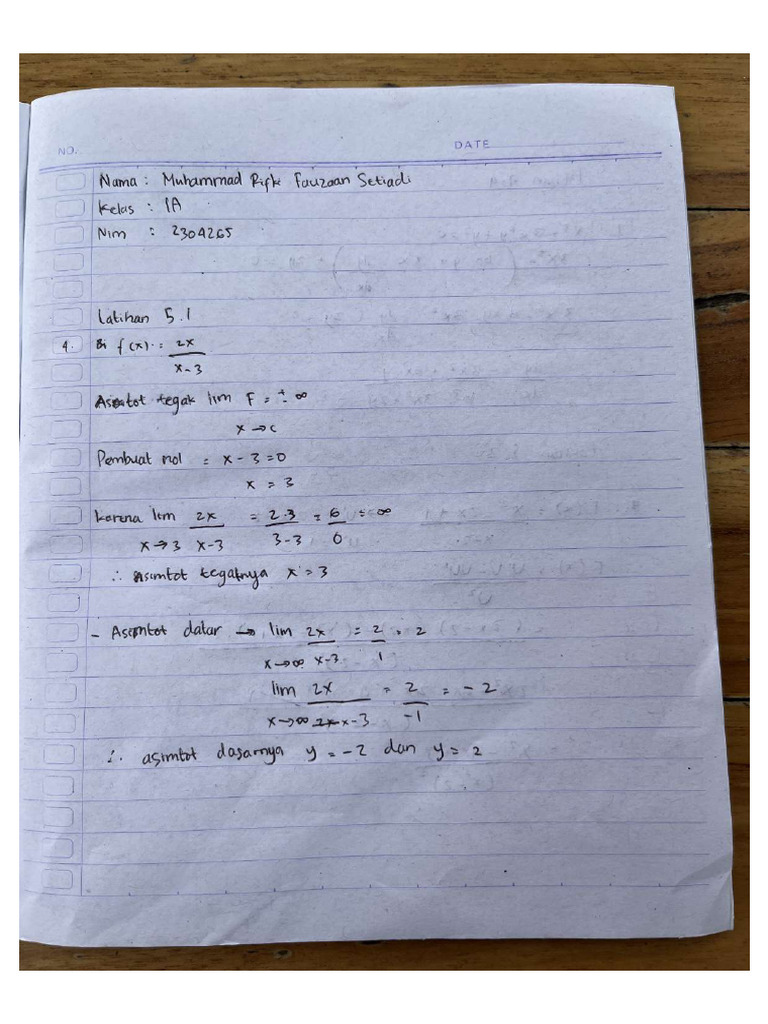 NO. DATE
Nama : Muhammad Rifk Fauzaan Setiadi
Kelas : 1A
Nim : 2304265
Latihan 5.1
4. f(x) = 2x
x-3
Asimtot tegak lim F = ± ∞
x → c
Pembuat nol = x - 3 = 0
x = 3
karena lim 2x = 2.3 = 6 = ∞
x→3 x-3 3-3 0
∴ asimtot tegaknya x = 3
- Asimtot datar → lim 2x = 2 = 2
x→∞ x-3 1
lim 2x = 2 = -2
x→∞ x-3 -1
∴ asimtot dasarnya y = -2 dan y = 2